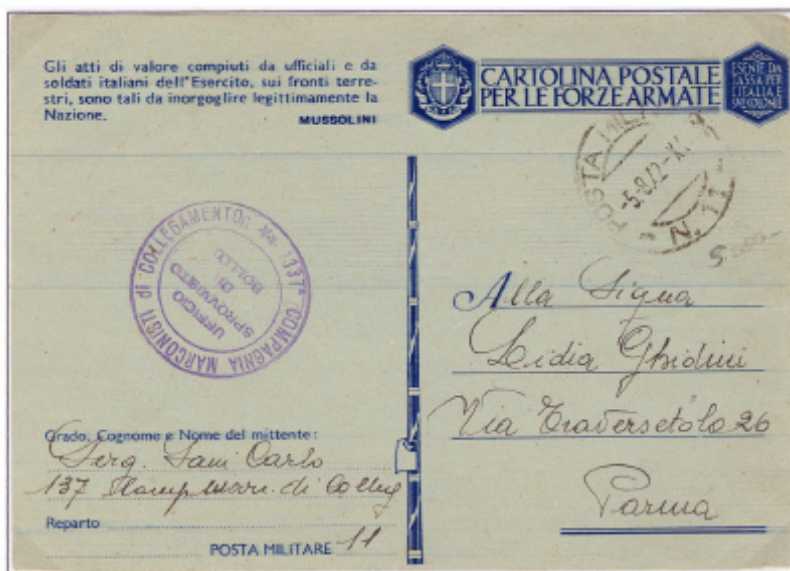 Gli atti di valore compiuti da ufficiali e da
soldati italiani dell'Esercito, sui fronti terre-
stri, sono tali da inorgoglire legittimamente la
Nazione.
MUSSOLINI
CARTOLINA POSTALE
PER LE FORZE ARMATE
ESENTE DA
TASSA PER
L'ITALIA E
SUE COLONIE
POSTA MIL
-5.8.42-X
N. 11
137ª COMPAGNIA MARCONISTI di COLLEGAMENTO
UFFICIO
SPROVVISTO
DI
BOLLO
Alla Sigra
Lidia Ghidini
Via Traversetolo 26
Parma
Grado, Cognome e Nome del mittente:
Serg. Sani Carlo
137 Comp Marc. di Colleg
Reparto
POSTA MILITARE 11